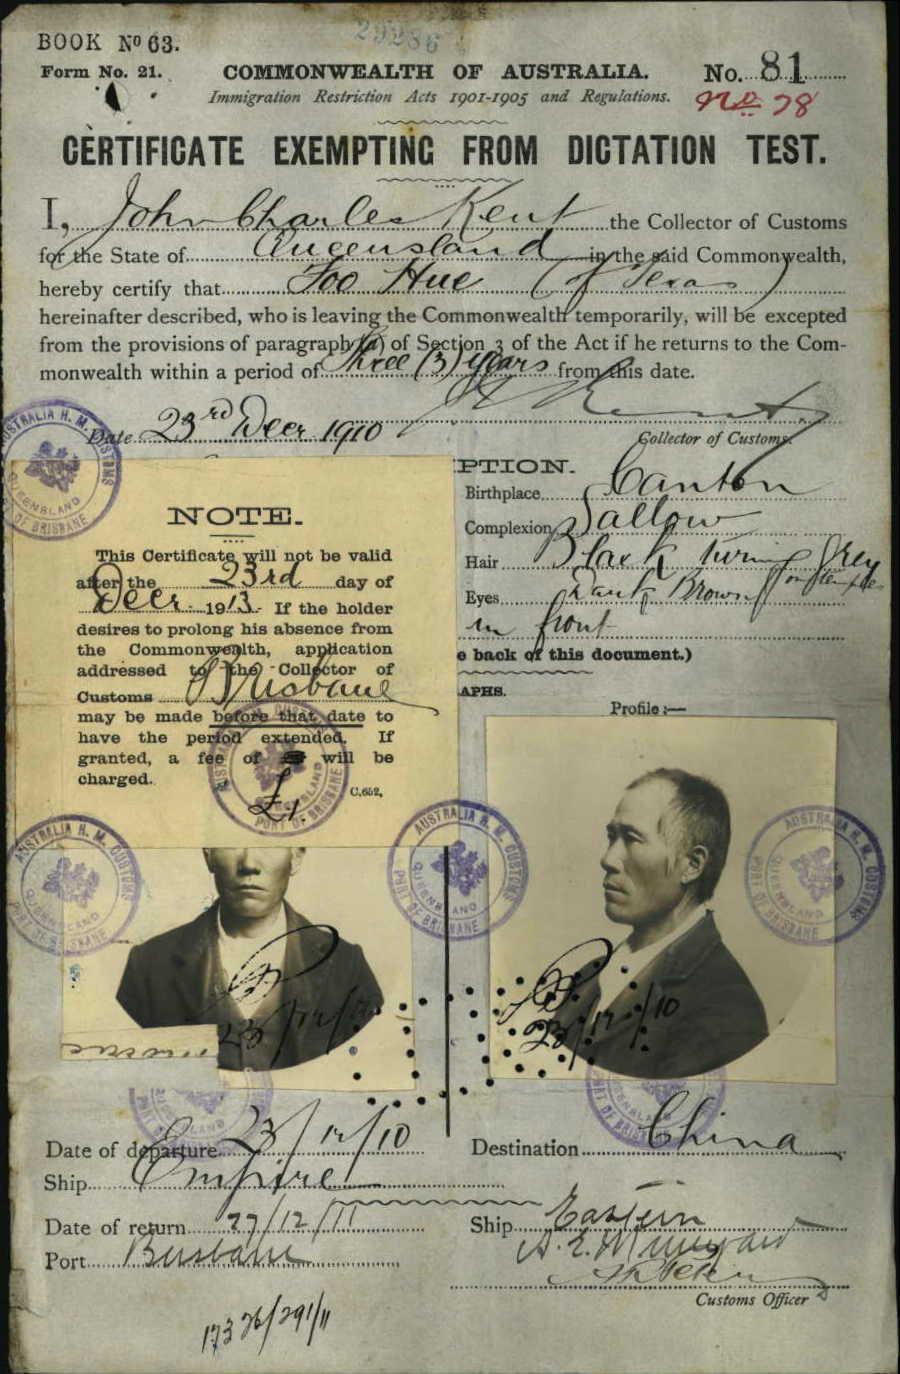 BOOK Nº 63.
29286
Form No. 21.
COMMONWEALTH OF AUSTRALIA.
No. 81
Immigration Restriction Acts 1901-1905 and Regulations.
No. 78
CERTIFICATE EXEMPTING FROM DICTATION TEST.
I, John Charles Kent the Collector of Customs
for the State of Queensland in the said Commonwealth,
hereby certify that Foo Hue (of Texas)
hereinafter described, who is leaving the Commonwealth temporarily, will be excepted
from the provisions of paragraph (a) of Section 3 of the Act if he returns to the Com-
monwealth within a period of Three (3) years from this date.
Date 23rd Decr 1910
Collector of Customs.
PTION.
Birthplace Canton
Complexion Sallow
Hair Black turning Grey
on temples
Eyes Dark Brown
in front
e back of this document.)
APHS.
Profile :—
NOTE.
This Certificate will not be valid
after the 23rd day of
Decr. 1913. If the holder
desires to prolong his absence from
the Commonwealth, application
addressed to the Collector of
Customs Brisbane
may be made before that date to
have the period extended. If
granted, a fee of will be
charged. £1.
C.652,
AUSTRALIA H. M. CUSTOMS
QUEENSLAND
PORT OF BRISBANE
23/12/10
23/12/10
Date of departure 23/12/10
Destination China
Ship Empire
Date of return 27/12/11
Ship Eastern
Port Brisbane
Customs Officer
17376/291/11